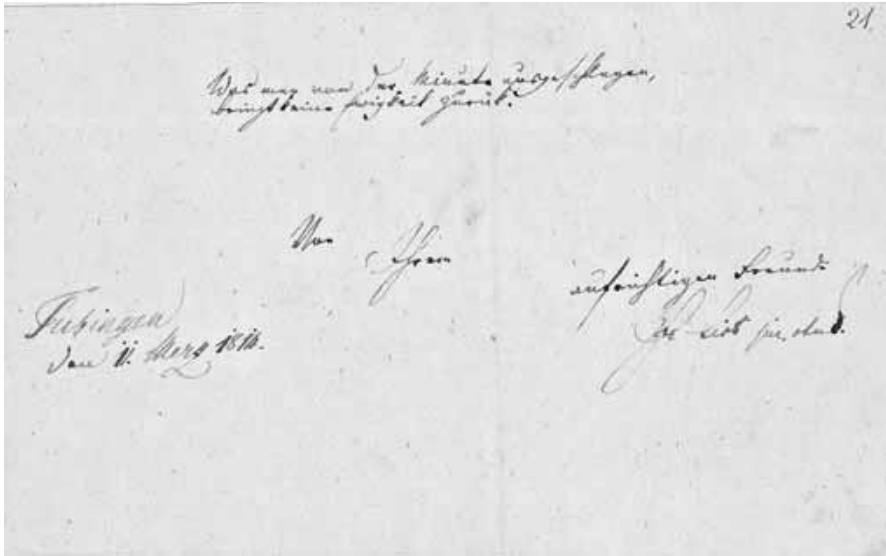 21.
Was man von der Minute ausgeschlagen,
bringt keine Ewigkeit zurük.
Von
Ihrem
aufrichtigen Freunde
jur. stud.
Tubingen
den 11. Merz 1816.